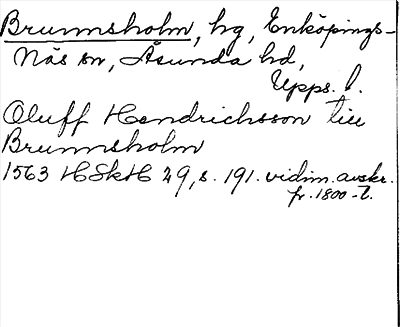 Brunnsholm, hg, Enköpings-
Näs sn, Åsunda hd,
Upps. l.
Oluff Hendrichsson till
Brunnsholm
1563 HSkH 29, s. 191. vidim. avskr.
fr. 1800-t.